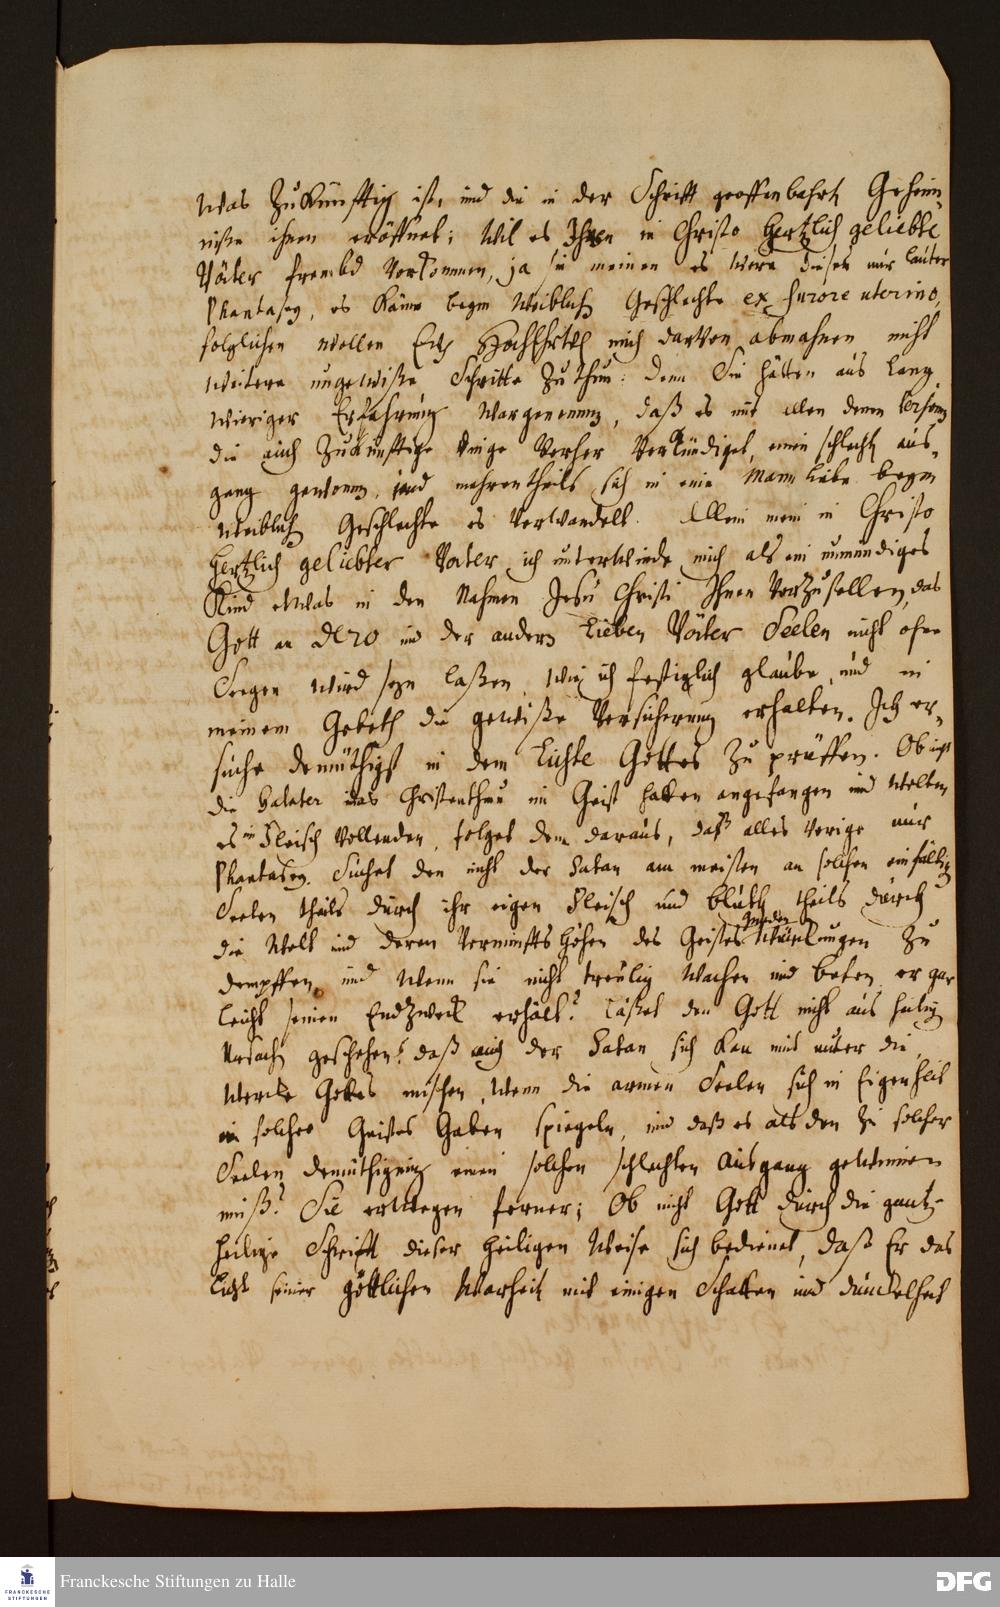 was Zukünfftig ist, und die in der Schrifft geoffenbahrte Geheim-
niße ihnen eröffnet; Wil es Ihnen in Christo Hertzlich geliebte
Väter frembd Vorkommen, ja sie meinen es were dieses nur lauter
Phantasey, es käme beym Weiblich Geschlechte ex furore uterino,
folglichen wollen Ew HochEhrw mich darvon abmahnen nicht
weitere ungewiße Schritte Zu thun: denn Sie hätten aus lang
wieriger Erfahrung wargenommen, daß es mit allen denen Persohnen
die auch Zukünfftige Dinge Vorher Verkündiget, einen schlecht aus-
gang gewonnen, und mehrentheils sich in eine Mann liebe beym
Weiblich Geschlechte es Verwandelt. Allein mein in Christo
Hertzlich geliebter Vater, ich unterwinde mich als ein unmündiges
Kind etwas in den Nahmen Jesu Christi Ihnen Vorzustellen, das
Gott an Dero und der andern Lieben Väter Seelen nicht ohne
Seegen wird seyn laßen, wie ich festiglich glaube, und in
meinem Gebeth die gewiße Versicherung erhalten. Ich er-
suche demüthigst in dem Lichte Gottes Zu prüffen. Ob nicht
die Galater das Christenthum im Geist hatten angefangen und wolten
es in Fleisch Vollenden, folget denn daraus, daß alles Vorige nur
Phantasey. Suchet den nicht der Satan am meisten an solchen einfältig
Seelen theils durch ihr eigen Fleisch und Bluth theils durch
die Welt und deren Vernunffts Höhen des Geistes Gnaden Würckungen Zu
dempffen, und Wenn sie nicht treulig Wachen und beten, er gar
leicht seinen Endzweck erhält? Läßet den Gott nicht aus heilig
Ursach geschehen? daß auch der Satan sich kan mit unter die
Wercke Gottes mischen, wenn die armen Seelen sich in Eigenheit
in solcher Geistes Gaben spiegeln, und daß es als den Zu solcher
Seelen demüthigung einen solchen schlechten Ausgang gewinnen
muß? Sie erwegen ferner; Ob nicht Gott durch die gantz-
heilige Schrifft dieser heiligen Weise sich bedienet, daß Er das
Licht seiner göttlichen Warheit mit einigen Schatten und dunckelheit
Franckesche Stiftungen zu Halle
FRANCKESCHE
STIFTUNGEN
DFG